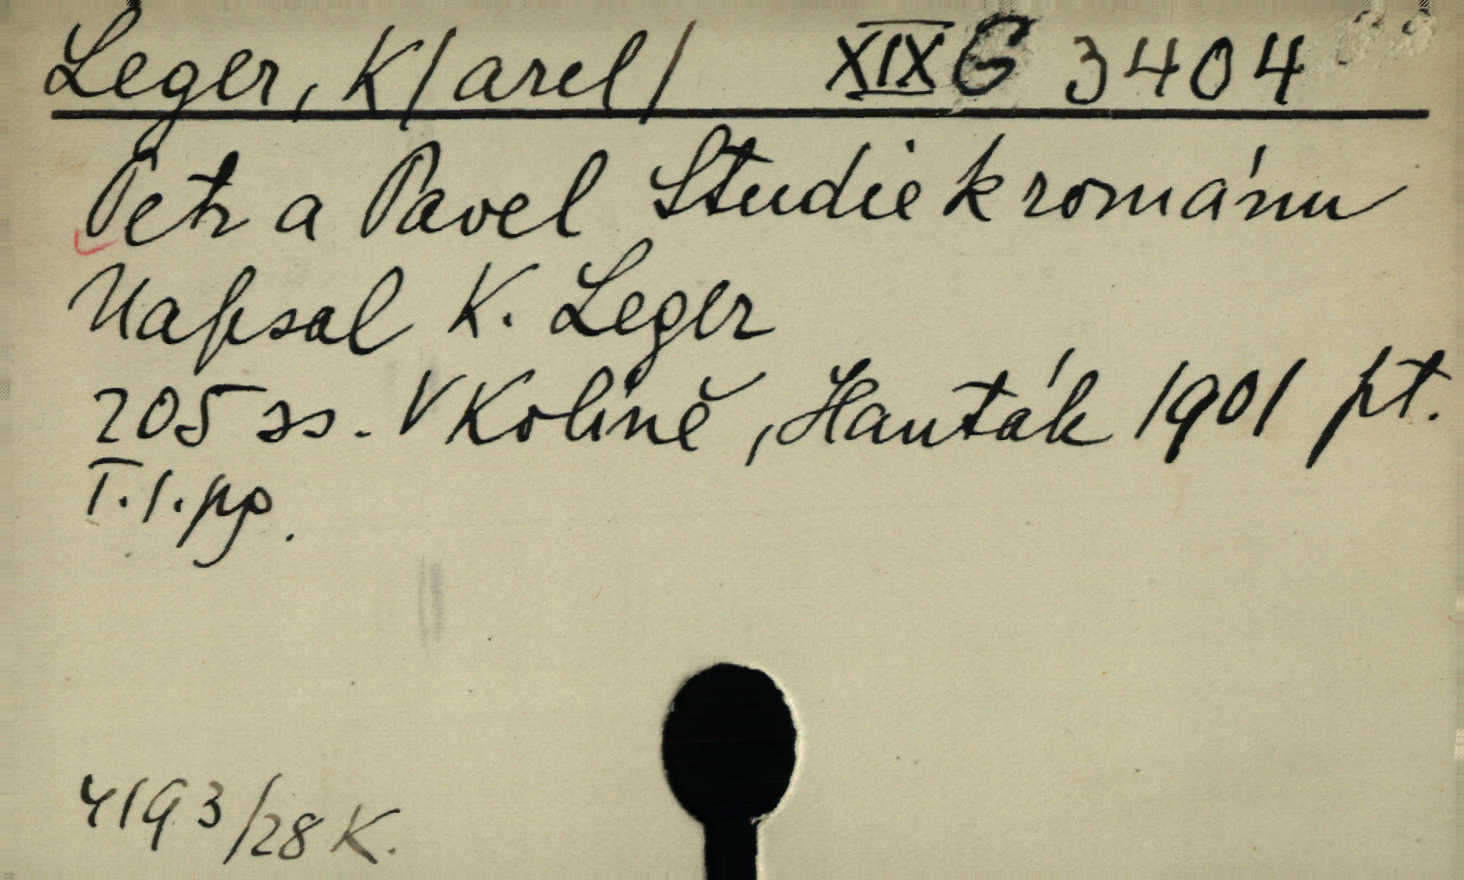 Leger, K/arel/ XIX G 3404
Petr a Pavel Studie k románu
Napsal K. Leger
205 ss. V Kolíně, Hanták 1901 pt.
T.I.pp.
4193/28 K.